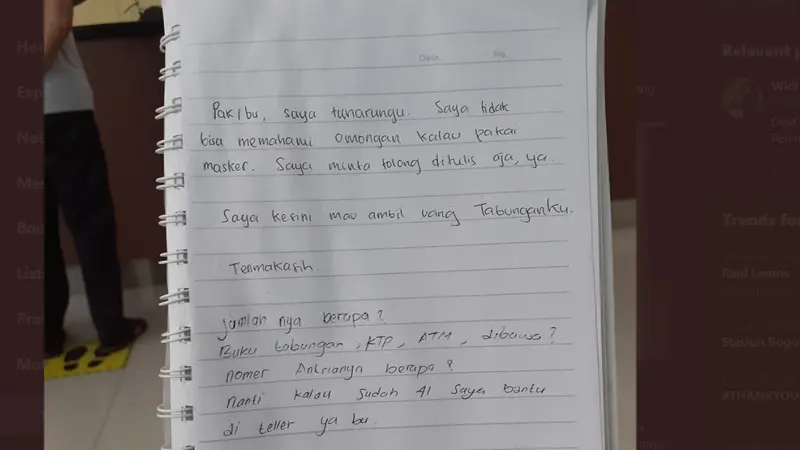 Date.
No.
Pak/bu, saya tunarungu. Saya tidak
bisa memahami omongan kalau pakai
masker. Saya minta tolong ditulis aja, ya.
Saya kesini mau ambil uang Tabunganku.
Terimakasih.
jumlah nya berapa?
Buku tabungan, KTP, ATM, dibawa?
nomer Antrianya berapa?
nanti kalau sudah 41 saya bantu
di teller ya bu.
Relevant
Trends for
Raul Lemos
Stasiun Bogo
#THANKYOU